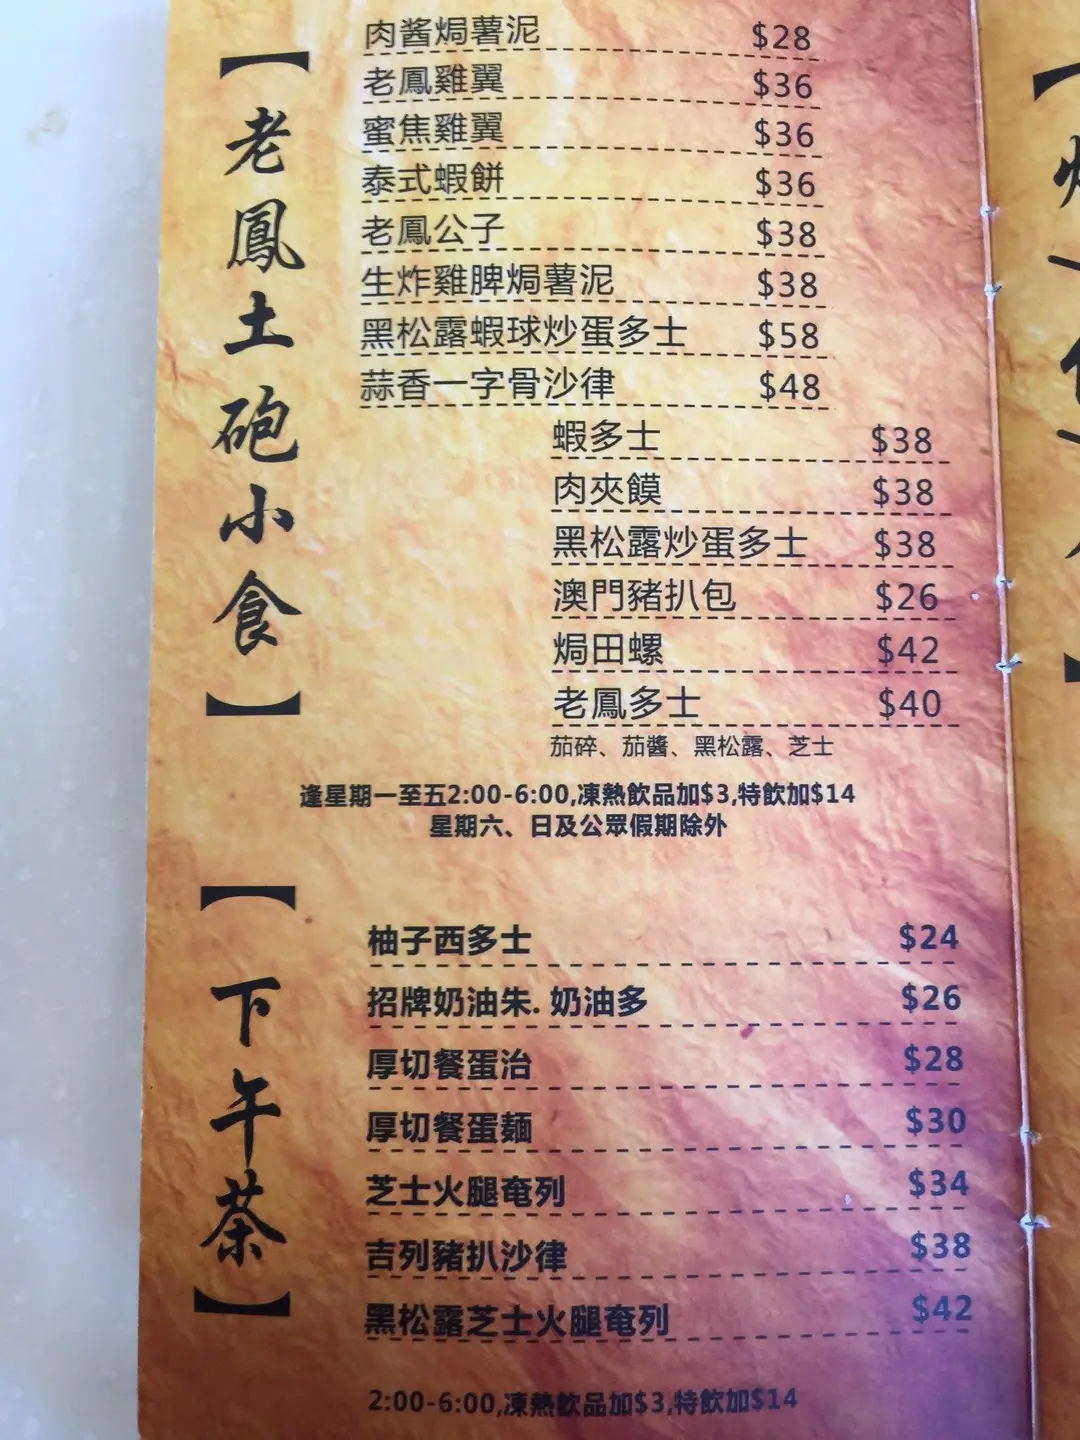 【老鳳土砲小食】
肉醬焗薯泥 $28
老鳳雞翼 $36
蜜焦雞翼 $36
泰式蝦餅 $36
老鳳公子 $38
生炸雞脾焗薯泥 $38
黑松露蝦球炒蛋多士 $58
蒜香一字骨沙律 $48
蝦多士 $38
肉夾饃 $38
黑松露炒蛋多士 $38
澳門豬扒包 $26
焗田螺 $42
老鳳多士 $40
茄碎、茄醬、黑松露、芝士
逢星期一至五2:00-6:00,凍熱飲品加$3,特飲加$14
星期六、日及公眾假期除外
【下午茶】
柚子西多士 $24
招牌奶油朱. 奶油多 $26
厚切餐蛋治 $28
厚切餐蛋麵 $30
芝士火腿奄列 $34
吉列豬扒沙律 $38
黑松露芝士火腿奄列 $42
2:00-6:00,凍熱飲品加$3,特飲加$14